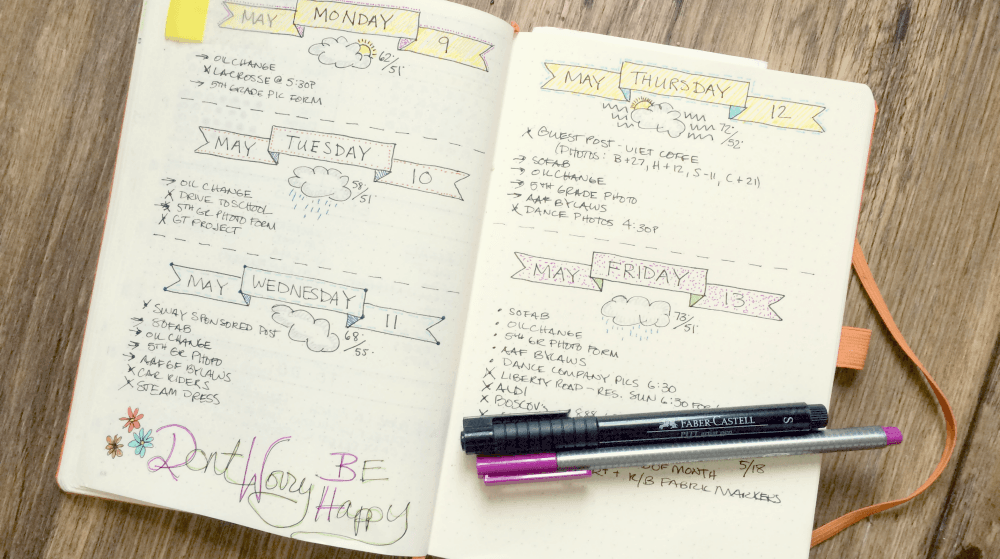 MAY MONDAY 9
62°/51°
→ OIL CHANGE
x LACROSSE @ 5:30P
→ 5TH GRADE PIC FORM
MAY TUESDAY 10
58/51°
→ OIL CHANGE
x DRIVE TO SCHOOL
→ 5TH GR PHOTO FORM
x GT PROJECT
MAY WEDNESDAY 11
68°/55°
x SWAY SPONSORED POST
→ SOFAB
→ OIL CHANGE
→ 5TH GR PHOTO
→ AAF GF BYLAWS
x CAR RIDERS
x STEAM DRESS
Dont Worry BE Happy
MAY THURSDAY 12
72°/52°
x GUEST POST - VIET COFFE
(PHOTOS: B+27, H+12, S-11, C+21)
→ SOFAB
→ OIL CHANGE
→ 5TH GRADE PHOTO
→ AAF BYLAWS
x DANCE PHOTOS 4:30P
MAY FRIDAY 13
73/51°
• SOFAB
• OIL CHANGE
• 5TH GR PHOTO FORM
• AAF BYLAWS
• DANCE COMPANY PICS 6:30
x LIBERTY ROAD - RES. SUN 6:30 FOR
x ALDI
x BOSCOV
FABER-CASTELL
PITT artist pen S
OF MONTH 5/18
+ R/B FABRIC MARKERS